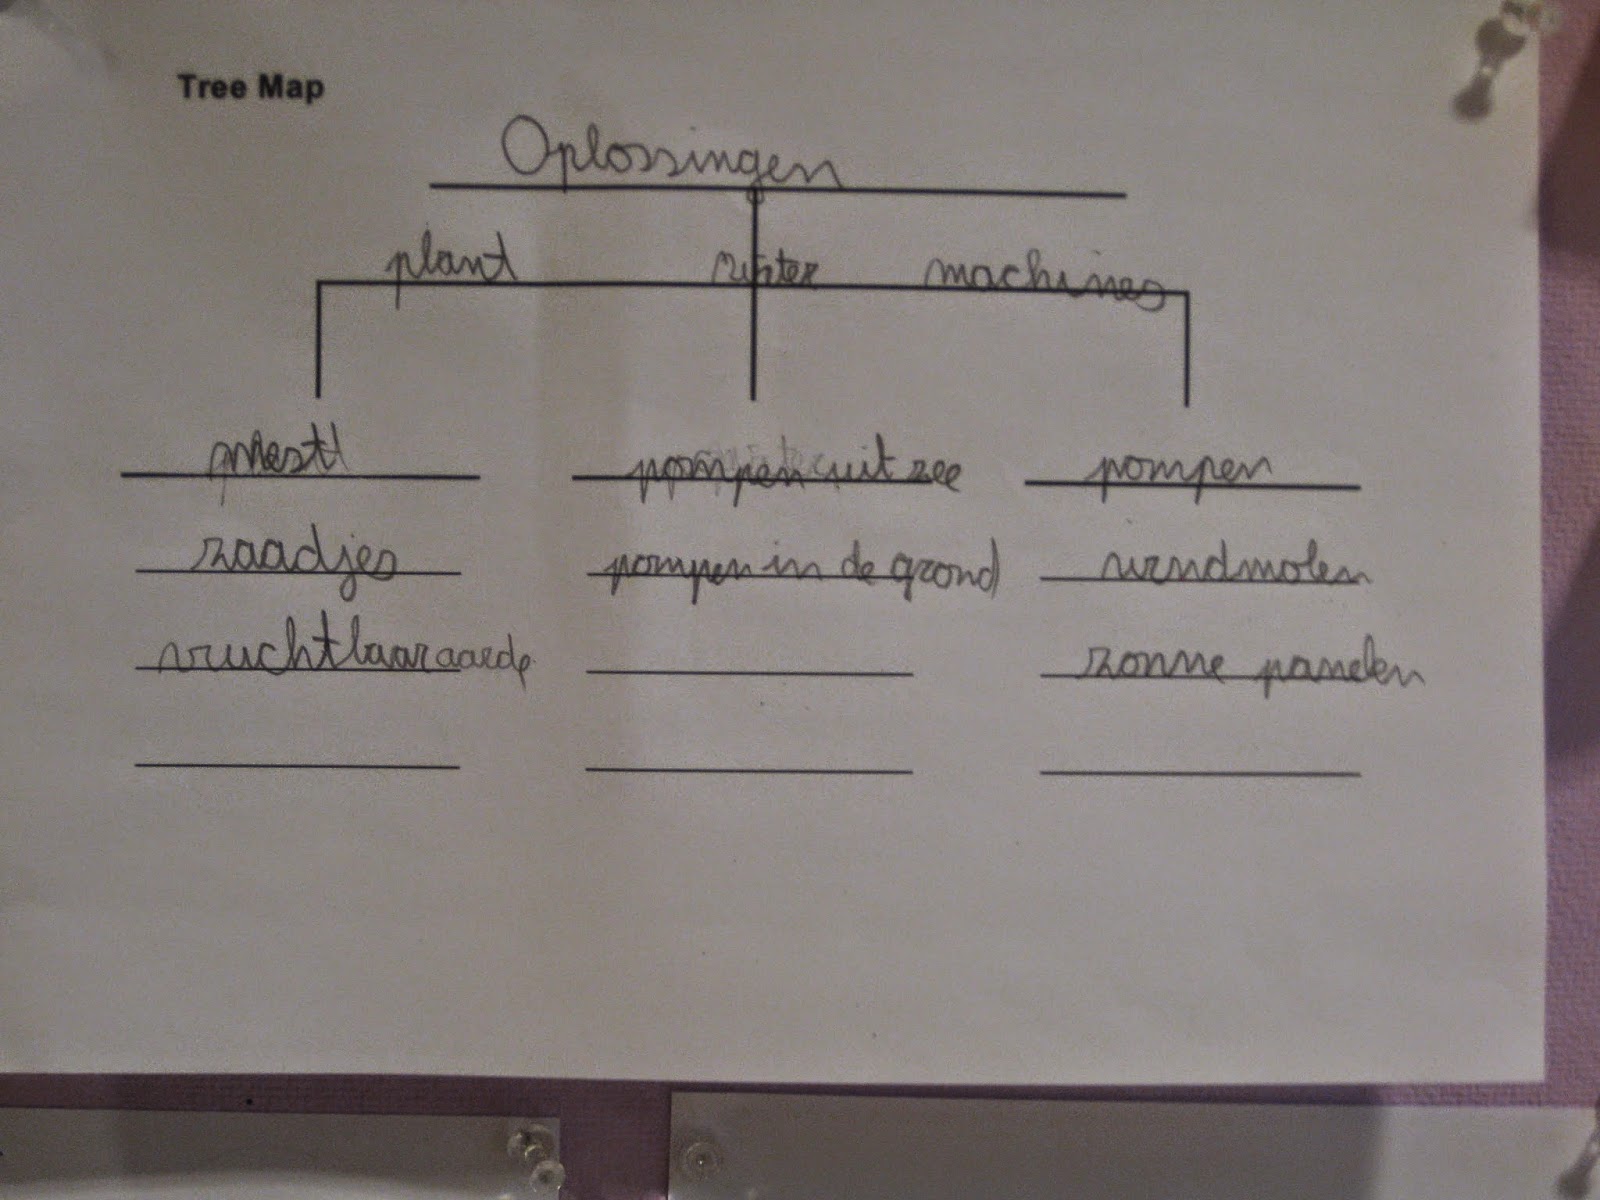 Tree Map
Oplossingen
plant machines
mest
zaadjes
vruchtbaar aarde
pompen uit zee
pompen in de grond
pompen
windmolen
zonne panelen